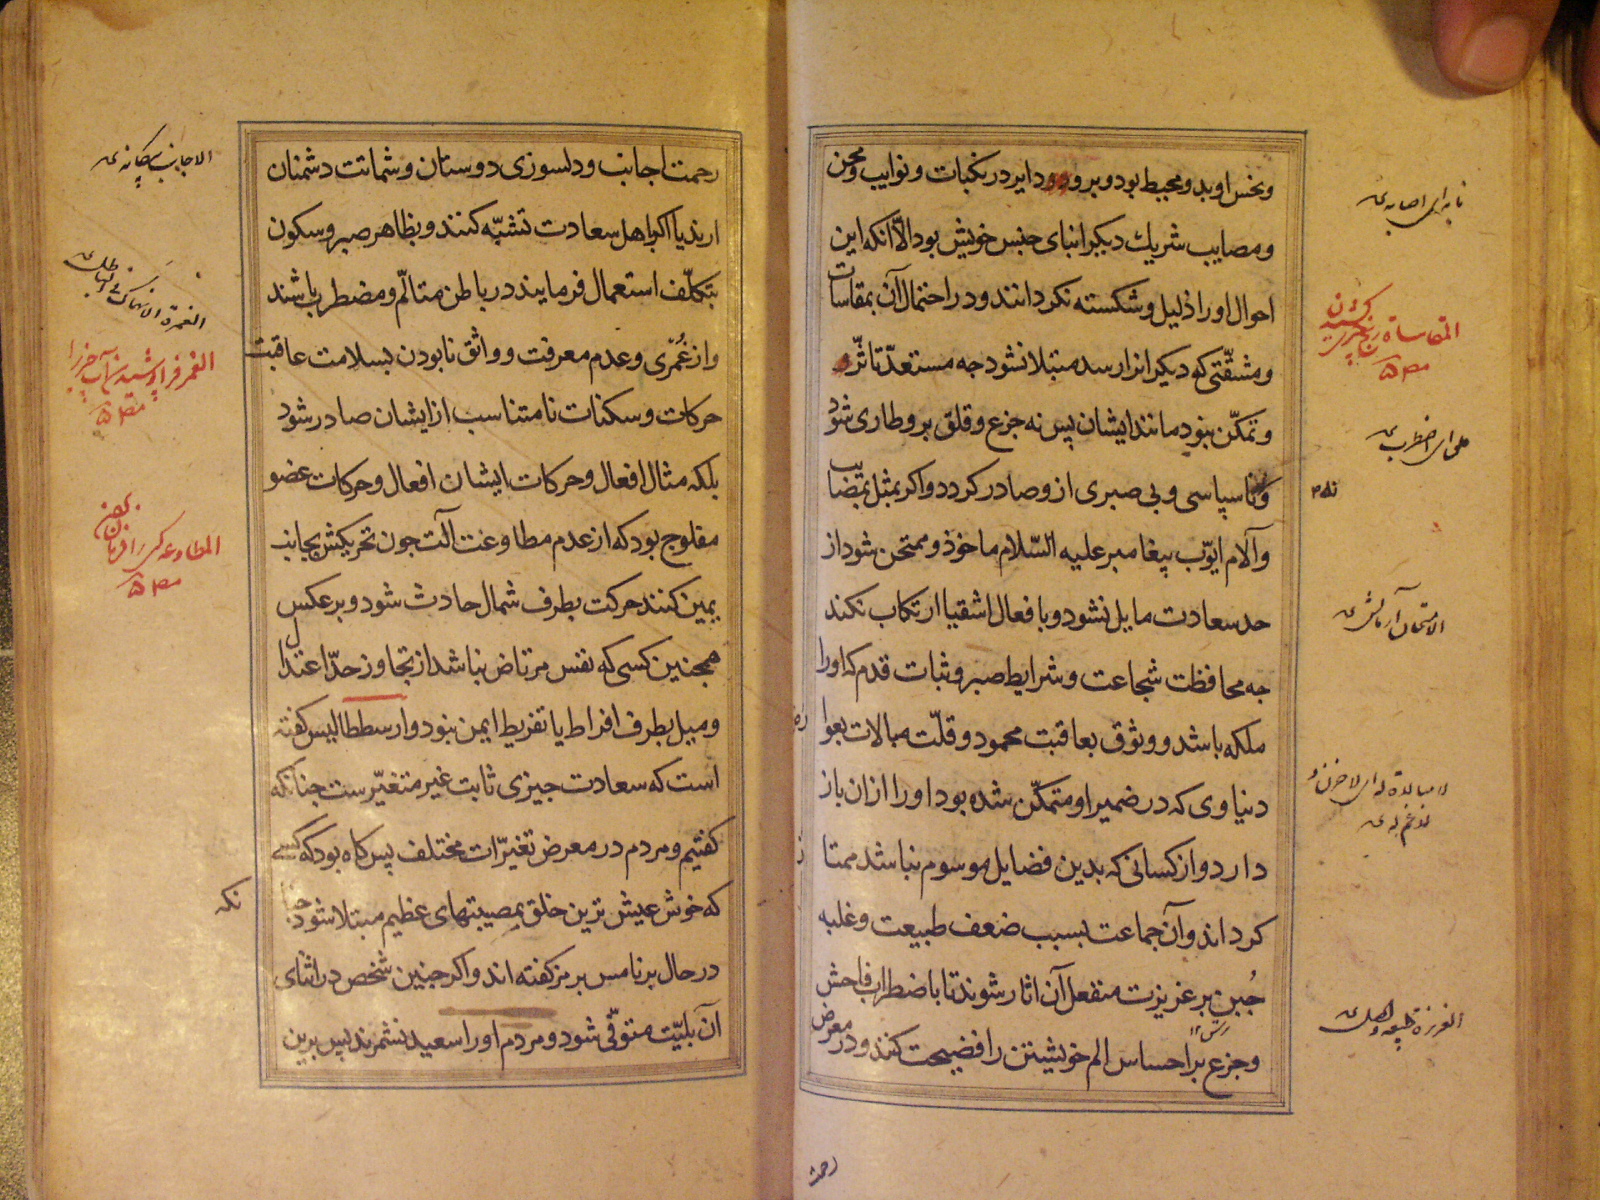 ونحس او بد و محیط بود و برو دایر در نکبات و نوایب و محن
و مصایب شریك دیکر ابنای جنس خویش بود الّا آنکه این
احوال او را ذلیل و شکسته نکردانند و در احتمال آن بمقاسات
و مشقّتی که دیکرانرا رسد مبتلا نشود جه مستعدّ تاثّر
و تمکّن نبود مانند ایشان پس نه جزع و قلق برو طاری شود
و ناسپاسی و بی صبری ازو صادر کردد و اکر بمثل بمصایب
و آلام ایوّب پیغامبر علیه السّلام ماخوذ و ممتحن شود از
حد سعادت مایل نشود و با فعال اشقیا ارتکاب نکند
جه محافظت شجاعت و شرایط صبر و ثبات قدم که او را
ملکه باشد و وثوق بعاقبت محمود و قلّت مبالات بعوا
دنیاوی که در ضمیر او متمکّن شده بود او را ازان باز
دارد و از کسانی که بدین فضایل موسوم نباشد ممتا
کرداند و آن جماعت بسبب ضعف طبیعت و غلبه
جُبن بر غریزت منفعل آن اثار شوند تا با ضطراب فاحش
و جزع بر احساس الم خویشتن را فضیحت کنند و در معرض
رحمت
نابه ای اصابه
المقاساة رنج چیزی کشیدن
الامتحان آزمایش
الغریزة طبیعة
رحمت اجانب و دلسوزی دوستان و شماتت دشمنان
ارند یا اکر باهل سعادت تشبّه کنند و بظاهر صبر و سکون
بتکلّف استعمال فرمایند در باطن متالّم و مضطرب باشند
و از غُمْری و عدم معرفت و واثق نا بودن بسلامت عاقبت
حرکات و سکنات نا متناسب از ایشان صادر شود
بلکه مثال افعال و حرکات ایشان افعال و حرکات عضو
مفلوج بود که از عدم مطاوعت آلت جون تحریکش بجانب
یمین کنند حرکت بطرف شمال حادث شود و بر عکس
همجنین کسی که نفس مرتاض نباشد از تجاوز حدّ اعتدال
و میل بطرف افراط یا تفریط ایمن نبود و ارسططالیس کفته
است که سعادت جیزی ثابت غیر متغیّرست جنانکه
کفتیم و مردم در معرض تغیّرات مختلف پس کاه بود که کسی
که خوش عیش ترین خلق بمصیبتهای عظیم مبتلا شود جنا
نکه
در حال برنامس برمز کفته اند و اکر جنین شخص در اثنای
آن بلیّت متوفّی شود و مردم او را سعید نشمرند پس برین
الاجانب بیکانه
المطاوعة کسی را فرمان بردن